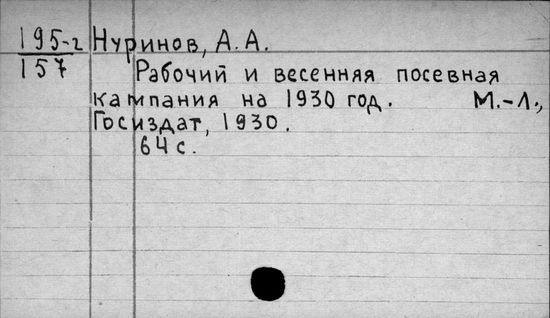 195-2 Нуринов, А.А.
157 Рабочий и весенняя посевная
кампания на 1930 год. М.-Л.,
Госиздат, 1930.
64 с.